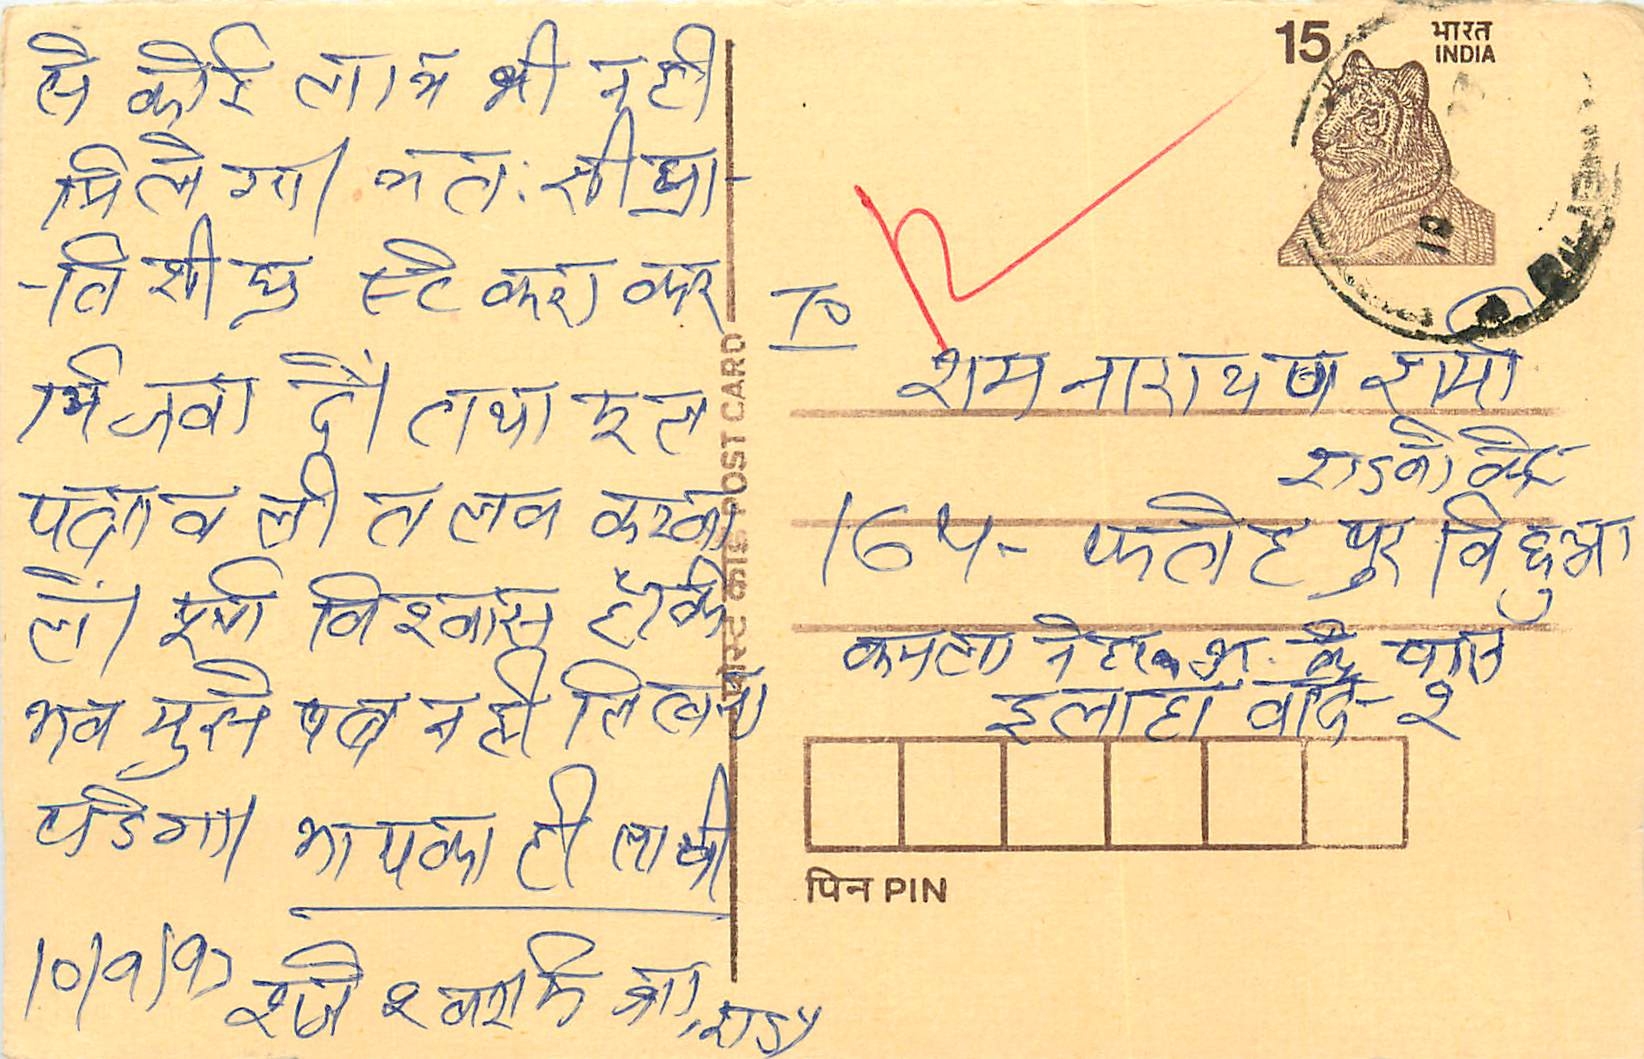 से कोई लाभ भी नही
मिलेगा। अतः शीघ्रा-
-ति शीघ्र स्टे करा कर
भिजवा दें। तथा इस
पत्रावली तलब करवा
लें। पूर्ण विश्वास है कि
अब मुझे पत्र नही लिखना
पडेगा। आपका ही साथी
10/9/93
राजेश्वर
15
भारत
INDIA
पोस्ट कार्ड POST CARD
To
राम नारायण शर्मा
एडवोकेट
164- फतेहपुर विछुआ
कमला नेहरू अ. के पास
इलाहाबाद-2
पिन PIN